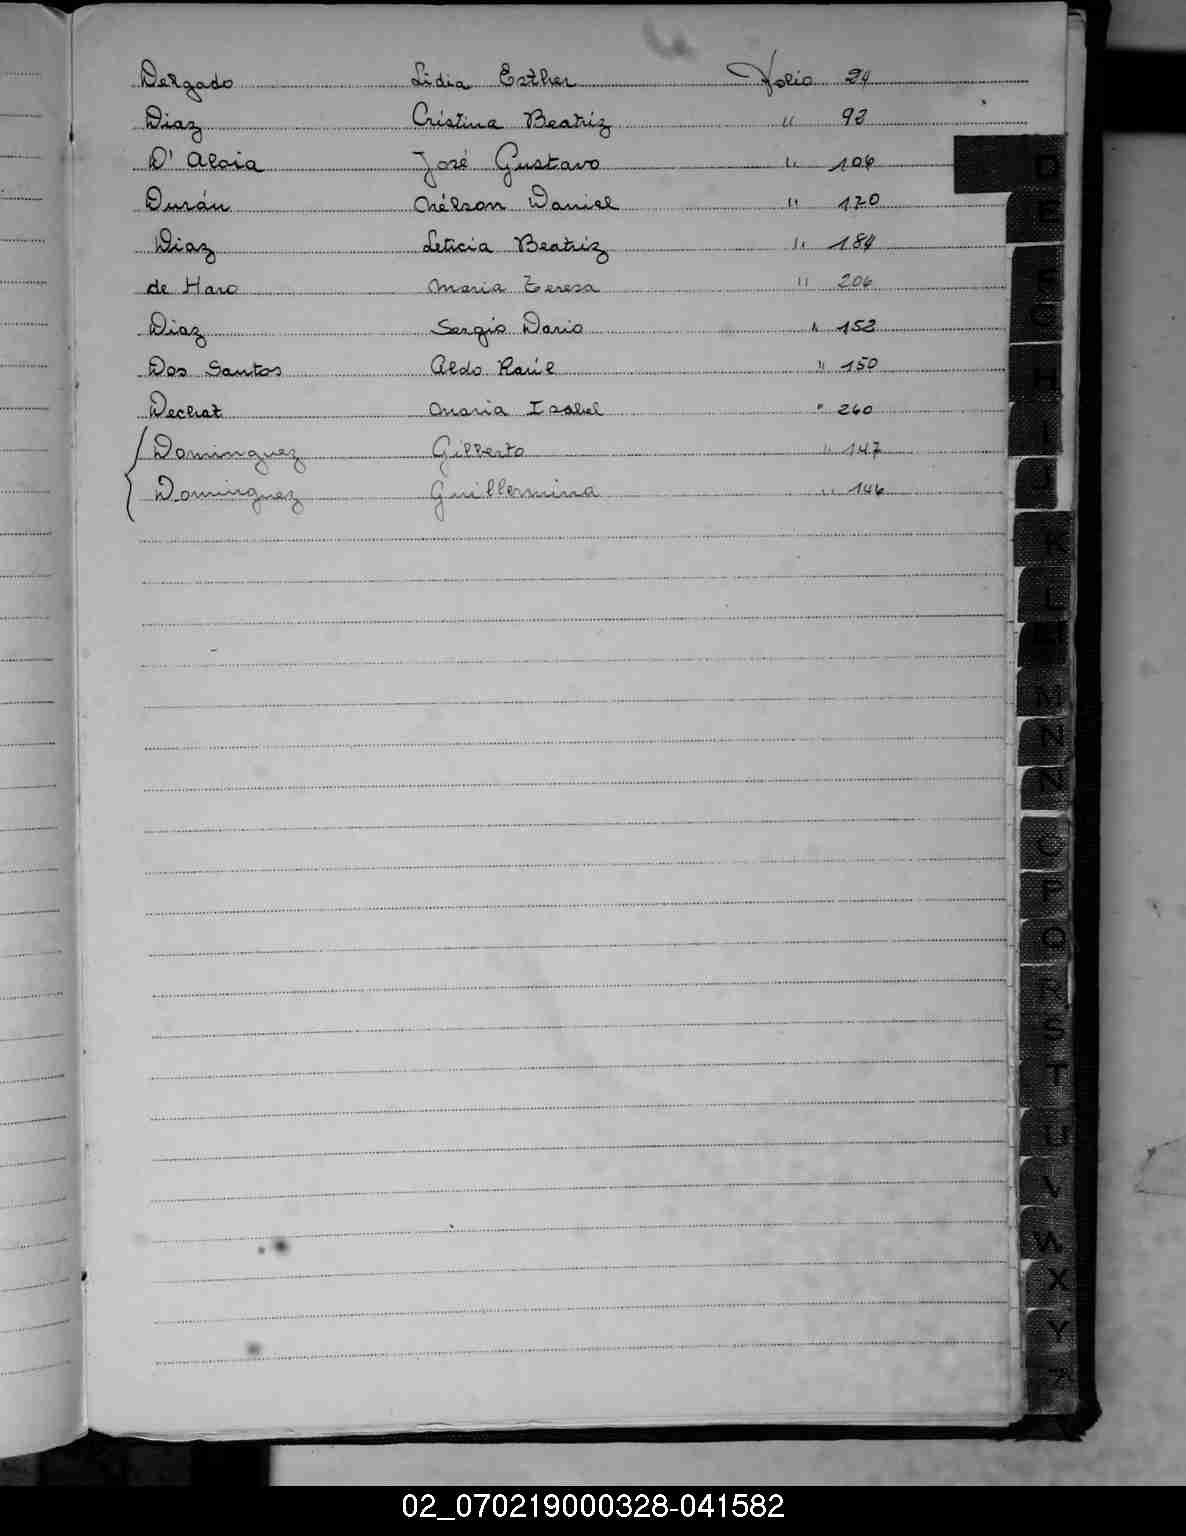 Delgado Lidia Esther Folio 24
Diaz Cristina Beatriz " 93
D' Aloia José Gustavo " 106
Durán Nélson Daniel " 170
Diaz Leticia Beatriz " 184
de Haro Maria Teresa " 206
Diaz Sergio Dario " 152
Dos Santos Aldo Raúl " 150
Dechat Maria Isabel " 260
Dominguez Gilberto " 147
Dominguez Guillermina " 146
D
E
F
G
H
I
J
K
L
M
N
N
O
P
Q
R
S
T
U
V
W
X
Y
Z
02_070219000328-041582